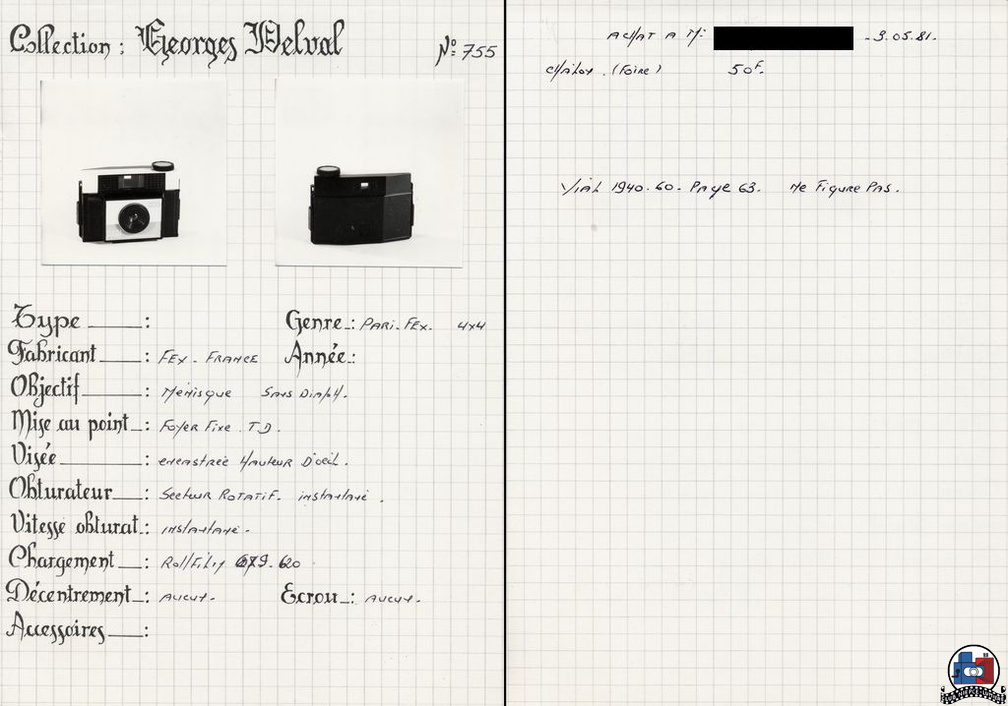 Collection : Georges Delval Nº 755
Type : Genre : PARI-FEX. 4x4
Fabricant : FEX - FRANCE Année :
Objectif : Ménisque Sans Diaph.
Mise au point : Foyer Fixe . T.D.
Visée : encastrée Hauteur D'oeil .
Obturateur : Secteur ROTATIF. instantané .
Vitesse obturat : instantané .
Chargement : Rollfilm 620
Décentrement : Aucun . Ecrou : Aucun .
Accessoires :
ACHAT A Mr - 3.05.81.
(Foire) 50F.
Vial 1940.60. Page 63. Ne Figure Pas .